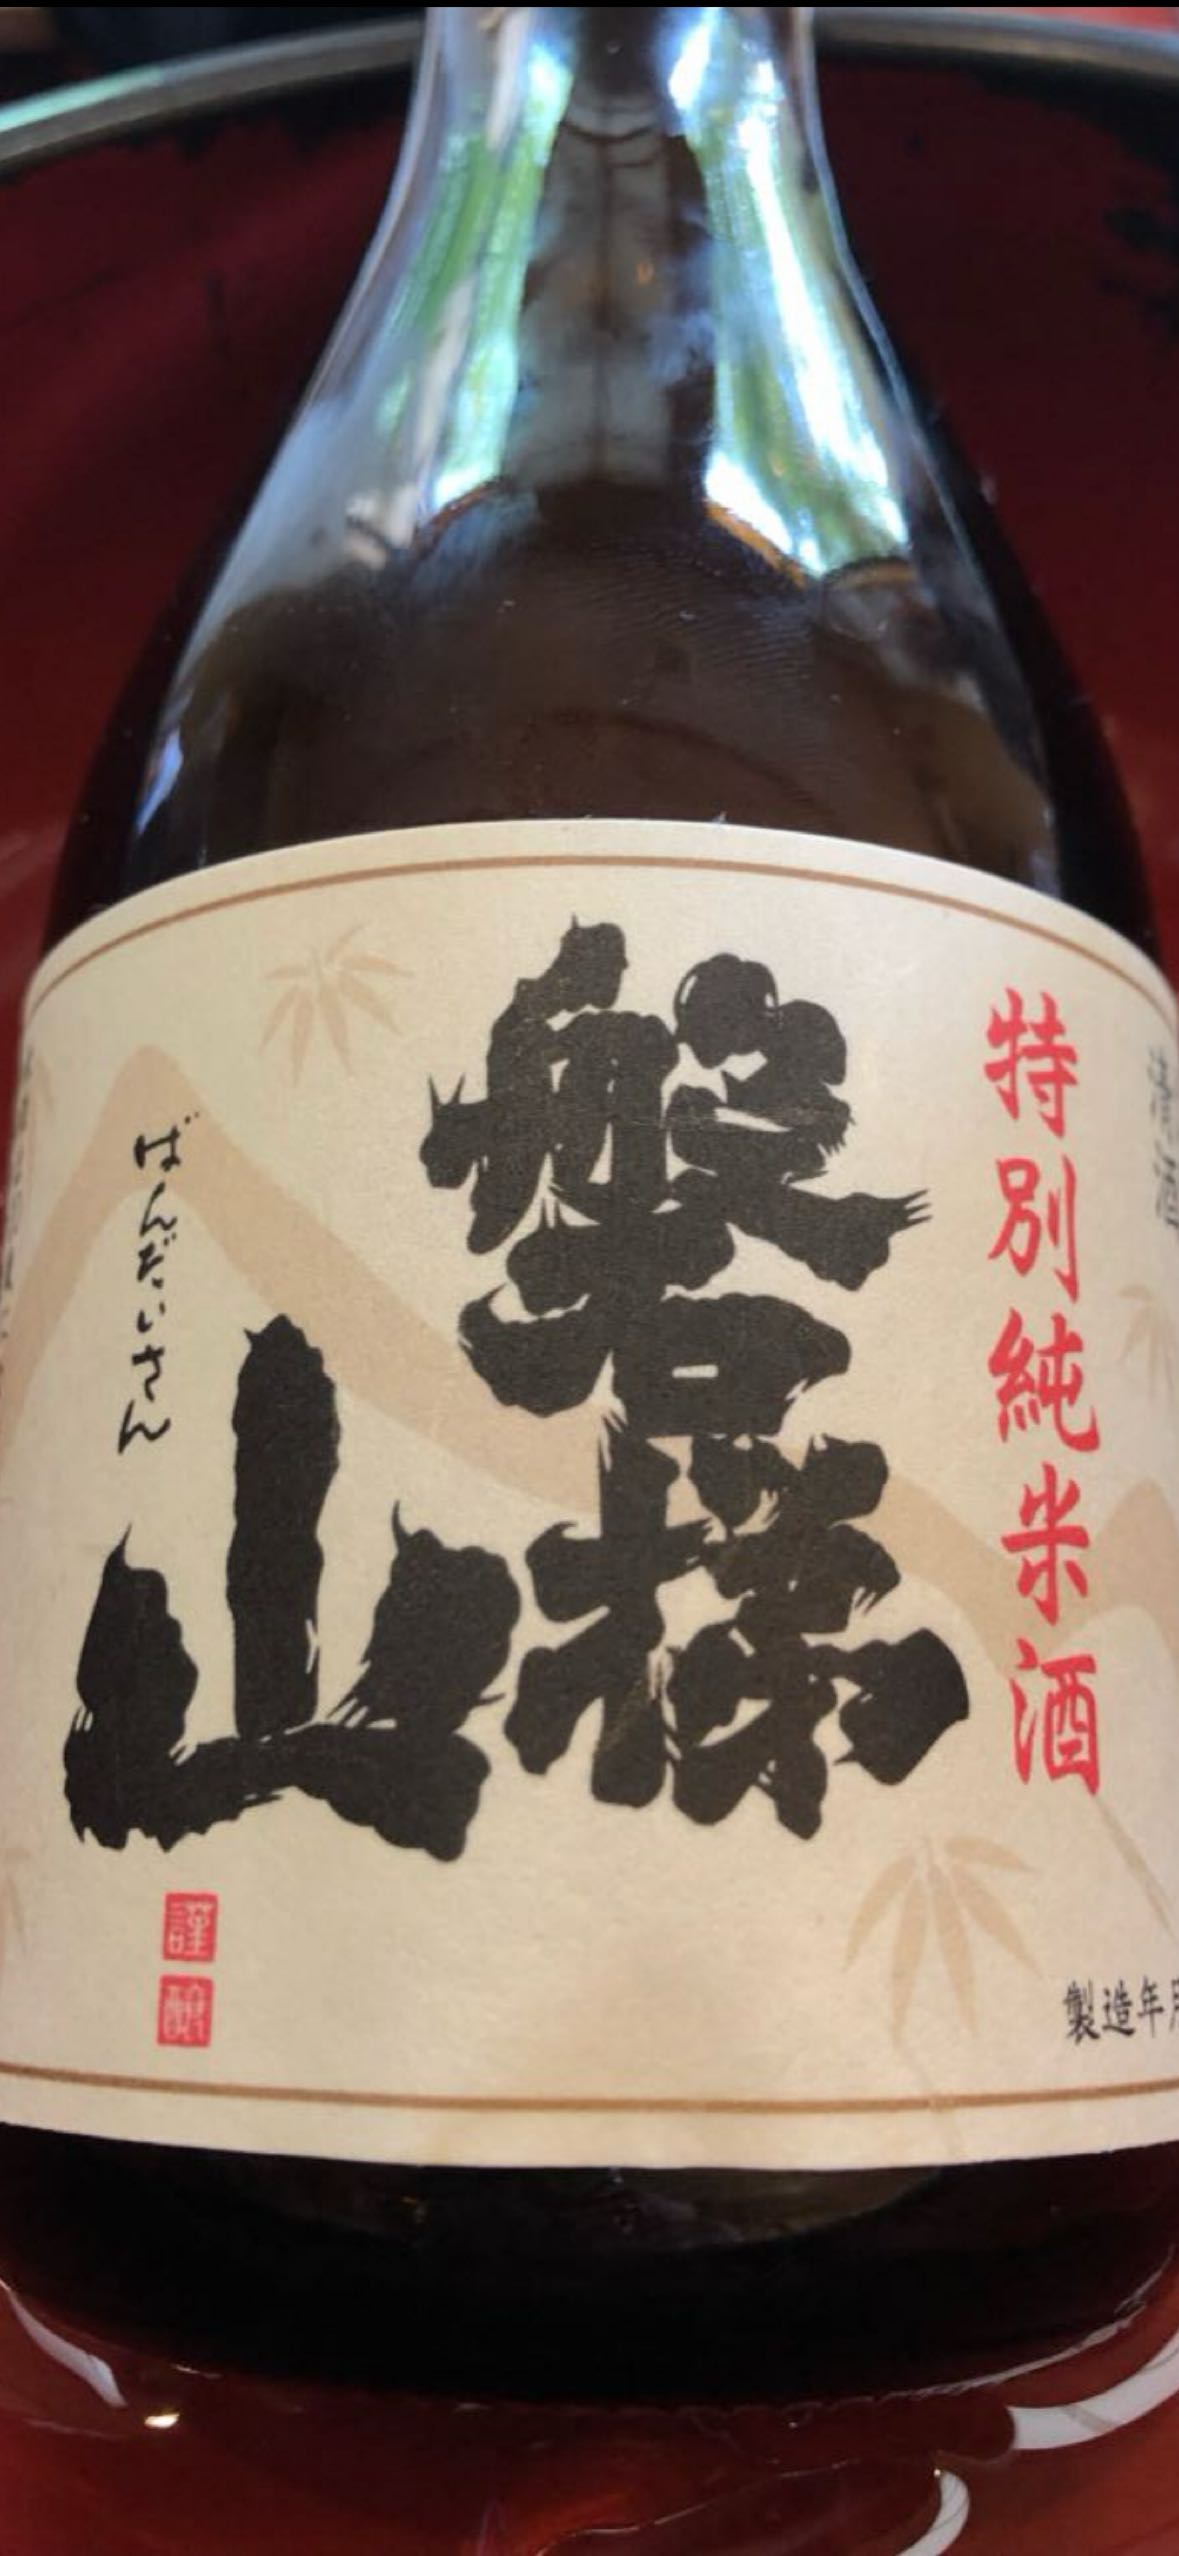 特別純米酒
磐梯
山
ばんだいさん
謹
醸
製造年月